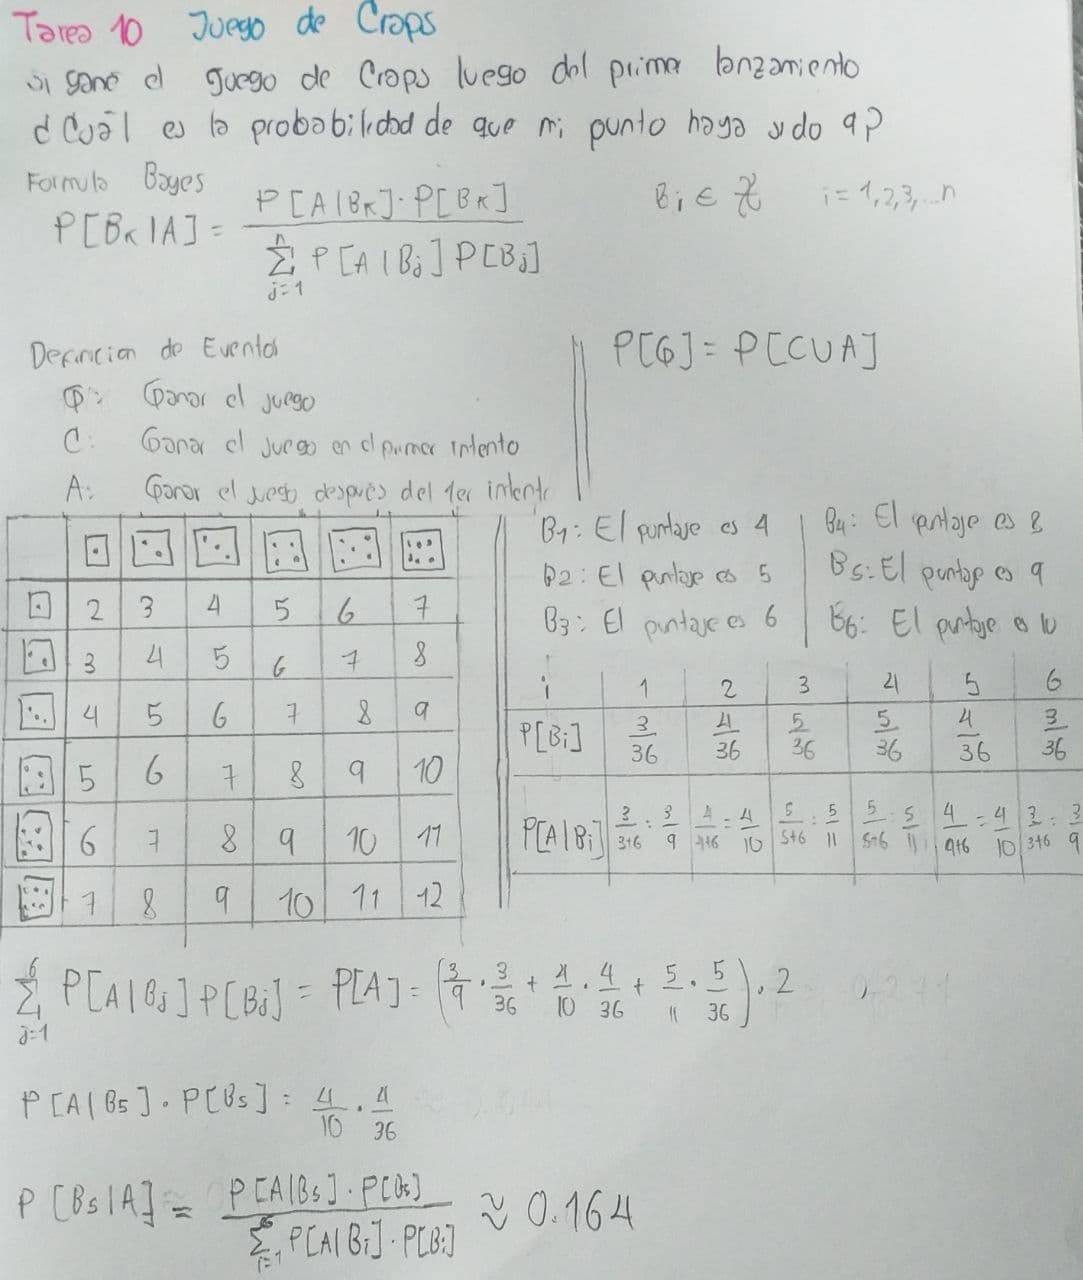 Tarea 10 Juego de Craps
si gano el juego de Craps luego del primer lanzamiento
¿Cuál es la probabilidad de que mi punto haya sido 9?
Formula Bayes
P[Bk|A] = P[A|Bk]·P[Bk] / ∑ⁿj=1 P[A|Bj] P[Bj]
i = 1,2,3,...n
Definicion de Eventos
G: Ganar el juego
C: Ganar el juego en el primer intento
A: Ganar el juego después del 1er intento
P[G] = P[C∪A]
B1: El puntaje es 4
B2: El puntaje es 5
B3: El puntaje es 6
B4: El puntaje es 8
B5: El puntaje es 9
B6: El puntaje es 10
2 3 4 5 6 7
3 4 5 6 7 8
4 5 6 7 8 9
5 6 7 8 9 10
6 7 8 9 10 11
7 8 9 10 11 12
i 1 2 3 4 5 6
P[Bi] 3/36 4/36 5/36 5/36 4/36 3/36
P[A|Bi] 3/3+6 = 3/9 4/4+6 = 4/10 5/5+6 = 5/11 5/5+6 = 5/11 4/4+6 = 4/10 3/3+6 = 3/9
∑⁶j=1 P[A|Bj] P[Bj] = P[A] = (3/9 · 3/36 + 4/10 · 4/36 + 5/11 · 5/36) · 2
P[A|B5] · P[B5] = 4/10 · 4/36
P[B5|A] = P[A|B5] · P[B5] / ∑⁶i=1 P[A|Bi] · P[Bi] ≈ 0.164